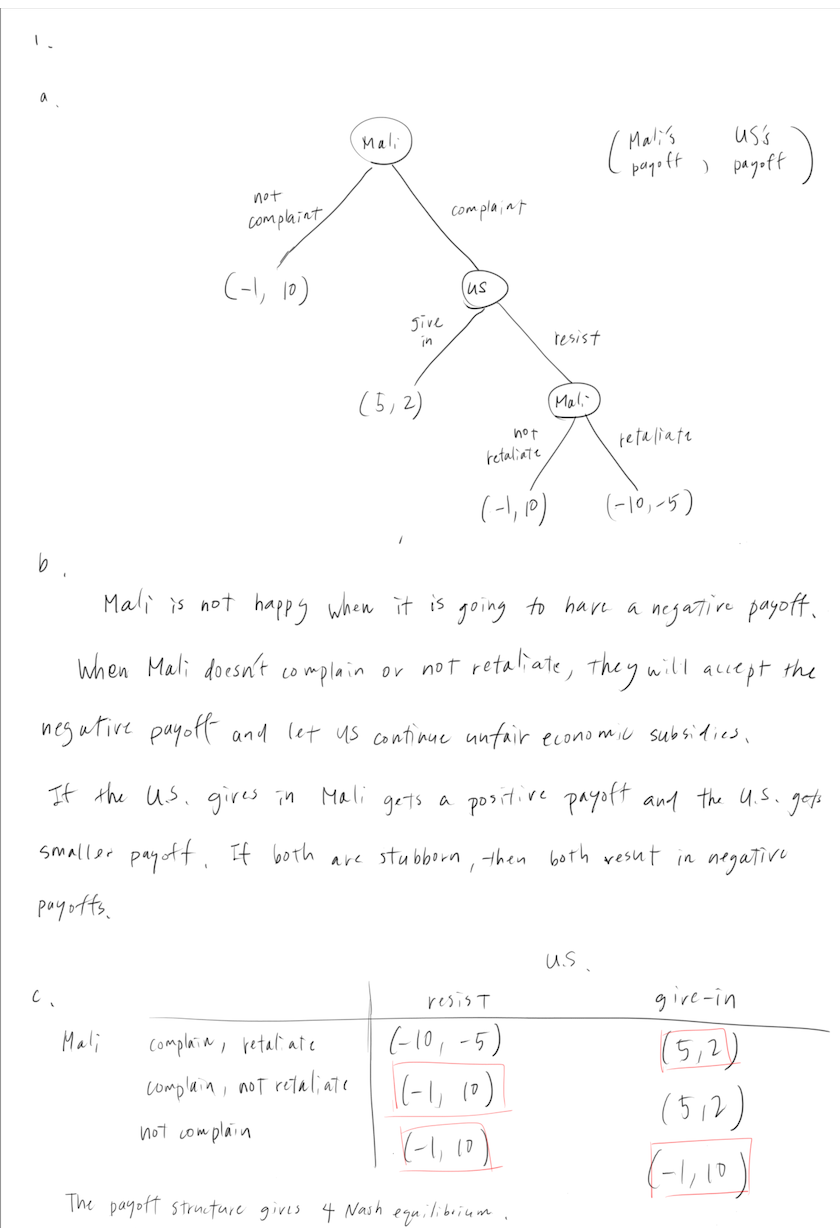 1.
a.
Mali
(Mali's payoff, US's payoff)
not complaint
complaint
(-1, 10)
US
give in
resist
(5, 2)
Mali
not retaliate
retaliate
(-1, 10)
(-10, -5)
b.
Mali is not happy when it is going to have a negative payoff.
When Mali doesn't complain or not retaliate, they will accept the
negative payoff and let US continue unfair economic subsidies.
If the U.S. gives in Mali gets a positive payoff and the U.S. gets
smaller payoff. If both are stubborn, then both result in negative
payoffs.
U.S.
c.
resist give-in
Mali complain, retaliate (-10, -5) (5, 2)
complain, not retaliate (-1, 10) (5, 2)
not complain (-1, 10) (-1, 10)
The payoff structure gives 4 Nash equilibrium.